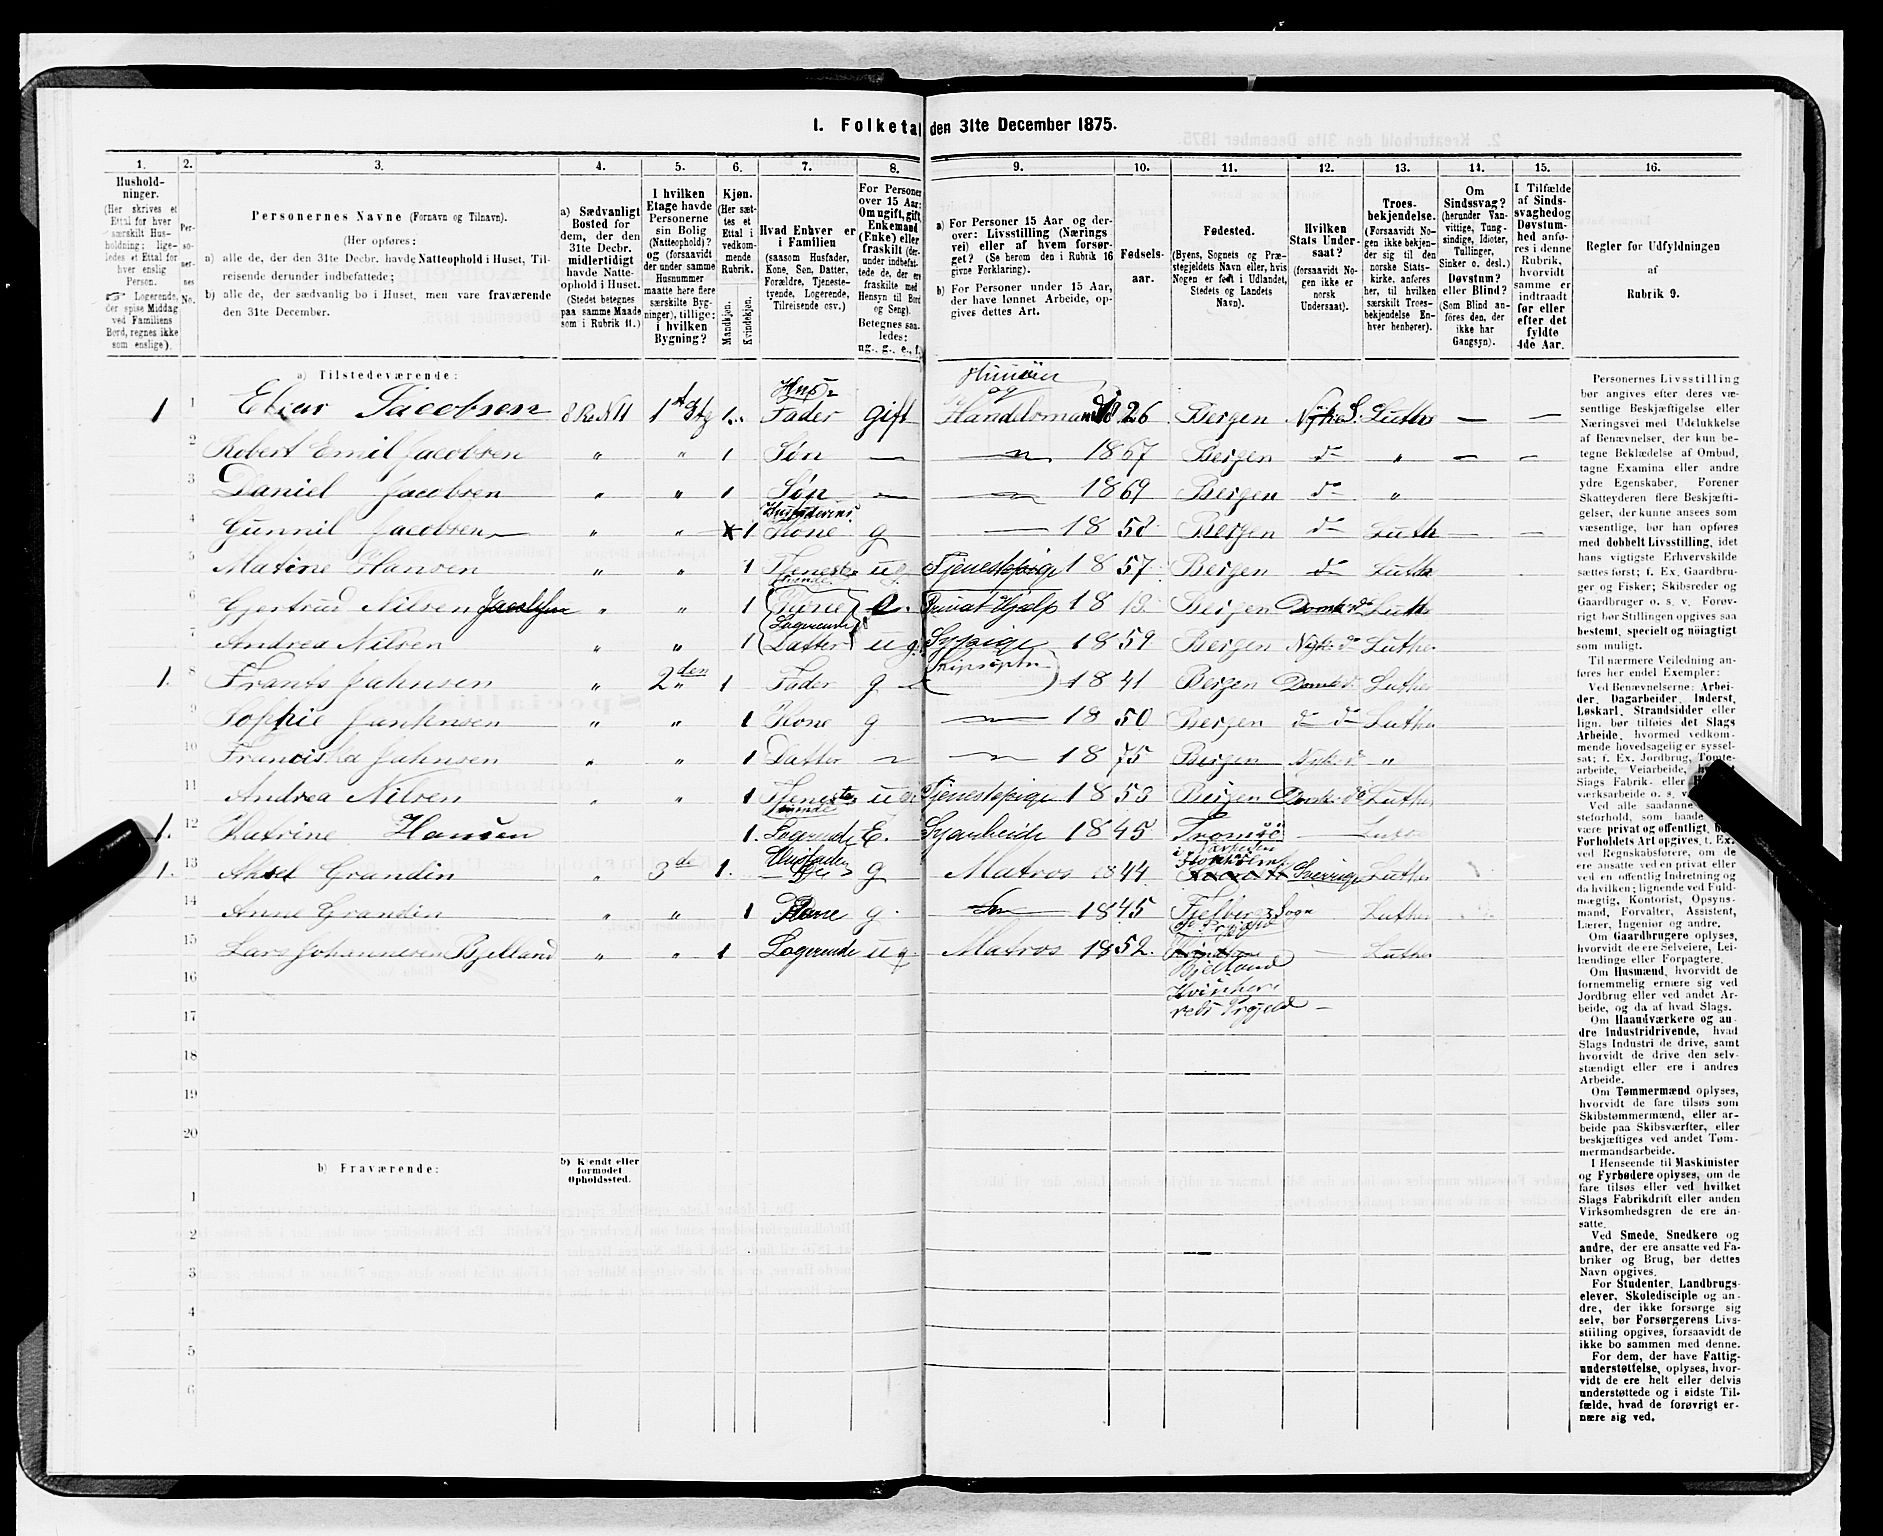 1. Folketal den 31te December 1875.
1. 2. 3. 4. 5. 6. 7. 8. 9. 10. 11. 12. 13. 14. 15. 16.
Hushold-
ninger.
(Her skrives et
Ettal for hver
særskilt Hus-
holdning; lige-
ledes et Ettal for
hver enslig
Person.
☞ Logerende,
der spise Middag
ved Familiens
Bord, regnes ikke
som enslige).
Per-
so-
ner-
nes
No.
Personernes Navne (Fornavn og Tilnavn).
(Her opføres:
a) alle de, der den 31te Decbr. havde Natteophold i Huset, Til-
reisende derunder indbefattede;
b) alle de, der sædvanlig bo i Huset, men vare fraværende
den 31te December.
a) Sædvanligt
Bosted for
dem, der den
31te Decbr.
midlertidigt
havde Natte-
ophold i Huset.
(Stedet betegnes
paa samme Maade
som i Rubrik 11.)
I hvilken
Etage havde
Personerne
sin Bolig
(Natteophold)?
og (forsaavidt
der under samme
Husnummer
maatte høre flere
særskilte Byg-
ninger), tillige:
i hvilken
Bygning?
Kjøn.
(Her sæt-
tes et
Ettal i
vedkom-
mende
Rubrik.
Mandkjøn.
Kvindekjøn.
Hvad Enhver er
i Familien
(saasom Husfader,
Kone, Søn, Datter,
Forældre, Tjeneste-
tyende, Logerende,
Tilreisende osv.)
For Personer
over 15 Aar:
Om ugift, gift,
Enkemand
(Enke) eller
fraskilt (der-
under indbefat-
tede de, der ere
fraskilte med
Hensyn til Bord
og Seng).
Betegnes saa-
ledes:
ug., g., e., f.
a) For Personer 15 Aar og der-
over: Livsstilling (Nærings
vei) eller af hvem forsør-
get? (Se herom den i Rubrik 16
givne Forklaring).
b) For Personer under 15 Aar,
der have lønnet Arbeide, op-
gives dettes Art.
Fødsels-
aar.
Fødested.
(Byens, Sognets og Præ-
stegjeldets Navn eller, hvis
Nogen er født i Udlandet,
Stedets og Landets
Navn).
Hvilken
Stats Under-
saat?
(forsaavidt No-
gen ikke er
norsk
Undersaat).
Troes-
bekjendelse.
(Forsaavidt No-
gen ikke bekjen-
der sig til den
norske Stats-
kirke, anføres
her, til hvilken
særskilt Troes-
bekjendelse En-
hver henhører).
Om
Sindssvag?
(herunder Van-
vittige, Tung-
sindige, Idioter,
Tullinger,
Sinker o. desl.)
Døvstum?
eller Blind?
(Som Blind an-
føres den, der
ikke har
Gangsyn).
I Tilfælde
af Sinds-
svaghed og
Døvstum-
hed anfø-
res i denne
Rubrik,
hvorvidt
samme er
indtraadt
før eller
efter det
fyldte
4de Aar.
Regler for Udfyldningen
af
Rubrik 9.
a) Tilstedeværende:
1 1 Elias Jacobsen 1st Etg 1 Hus- Fader gift og Handelsmand 1826 Bergen Luthe — —
2 Robert Emil Jacobsen „ „ 1 Søn — — 1867 Bergen do „ — —
3 Daniel Jacobsen „ „ 1 Søn — — 1869 Bergen do „
4 Gunnil Jacobsen „ „ 1 Kone g — 1858 Bergen do Luth — —
5 Matine Hansen „ „ 1 Tjeneste ug. Tjenestepige 1857 Bergen do Luth
6 Gjertrud Nilsen Jacobsen „ „ 1 Kone e. Privat Hjælp 18 Bergen Domk do Luth
7 Andrea Nilsen „ „ 1 Logerende Datter ug Sypige 1859 Bergen Nyk do Luthe
1. 8 Frants Jahnsen „ 2den 1 Fader g 1841 Bergen Domk do Luthe
9 Sophie Janhsen „ „ 1 Kone g — 1850 Bergen do do Luthe
10 Franciska Jahnsen „ „ 1 Datter — — 1875 Bergen Nyk do „
11 Andrea Nilsen „ „ 1 Tjeneste ug Tjenestepige 1853 Bergen Domk do Luthe
1. 12 Katrine Hansen 1 Logerende E. Syarbeide 1845 Tromsö —
1. 13 Aksel Grandin „ 3de 1. Husfader g Matros 1844 Sverrige Luthe
14 Anne Grandin „ „ 1 Kone g. 1845 Fjelbergs Sogn Luthe
15 Lars Johannesen Bjelland „ „ 1 Logerende ug Matros 1852. Bjelland i Kvinher- reds Prgjeld — Luthe
16
17
18
19
20
b) Fraværende:
b) Kjendt eller
formodet
Opholdssted.
1
2
3
4
5
6
Personernes Livsstilling
bør angives efter deres væ-
sentlige Beskjæftigelse eller
Næringsvei med Udelukkelse
af Benævnelser, der kun be-
tegne Beklædelse af Ombud,
tagne Examina eller andre
ydre Egenskaber. Forener
Skatteyderen flere Beskjæfti-
gelser, der kunne ansees som
væsentlige, bør han opføres
med dobbelt Livsstilling, idet
hans vigtigste Erhvervskilde
sættes først; f. Ex. Gaardbru-
ger og Fisker; Skibsreder og
Gaardbruger o. s. v. Forøv-
rigt bør Stillingen opgives saa
bestemt, specielt og nøiagtigt
som muligt.
Til nærmere Veiledning an-
føres her endel Exempler:
Ved Benævnelserne: Arbei-
der, Dagarbeider, Inderst,
Løskarl, Strandsidder eller
lign. bør tilføies det Slags
Arbeide, hvormed vedkom-
mende hovedsagelig er syssel-
sat; f. Ex. Jordbrug, Tomte-
arbeide, Veiarbeide,
Slags Fabrik- eller
værksarbeide o. s.
Ved alle saadanne
steforhold, som baade
være privat og offentlig, bør
Forholdets Art opgives, f. Ex.
ved Regnskabsførere, om de
ere ansatte ved en privat eller
ved en offentlig Indretning og
da hvilken; lignende ved Fuld-
mægtig, Kontorist, Opsyns-
mand, Forvalter, Assistent,
Lærer, Ingeniør og andre.
Om Gaardbrugere oplyses,
hvorvidt de ere Selveiere, Lei-
lændinge eller Forpagtere.
Om Husmænd, hvorvidt de
fornemmelig ernære sig ved
Jordbrug eller ved andet Ar-
beide, og da af hvad Slags.
Om Haandværkere og an-
dre Industridrivende, hvad
Slags Industri de drive, samt
hvorvidt de drive den selv-
stændigt eller ere i andres
Arbeide.
Om Tømmermænd oplyses,
hvorvidt de fare tilsøs som
Skibstømmermænd, eller ar-
beide paa Skibsværfter, eller
beskjæftiges ved andet Tøm-
mermandsarbeide.
I Henseende til Maskinister
og Fyrbødere oplyses, om de
fare tilsøs eller ved hvilket
Slags Fabrikdrift eller anden
Virksomhedsgren de ere an-
satte.
Ved Smede, Snedkere og
andre, der ere ansatte ved Fa-
briker og Brug, bør dettes
Navn opgives.
For Studenter, Landbrugs-
elever, Skoledisciple og an-
dre, der ikke forsørge sig
selv, bør Forsørgerens Livs-
stilling opgives, forsaavidt de
ikke bo sammen med denne.
For dem, der have Fattig-
understøttelse, oplyses, hvor-
vidt de ere helt eller delvis
understøttede og i sidste Til-
fælde, hvad de forøvrigt er-
nære sig ved.